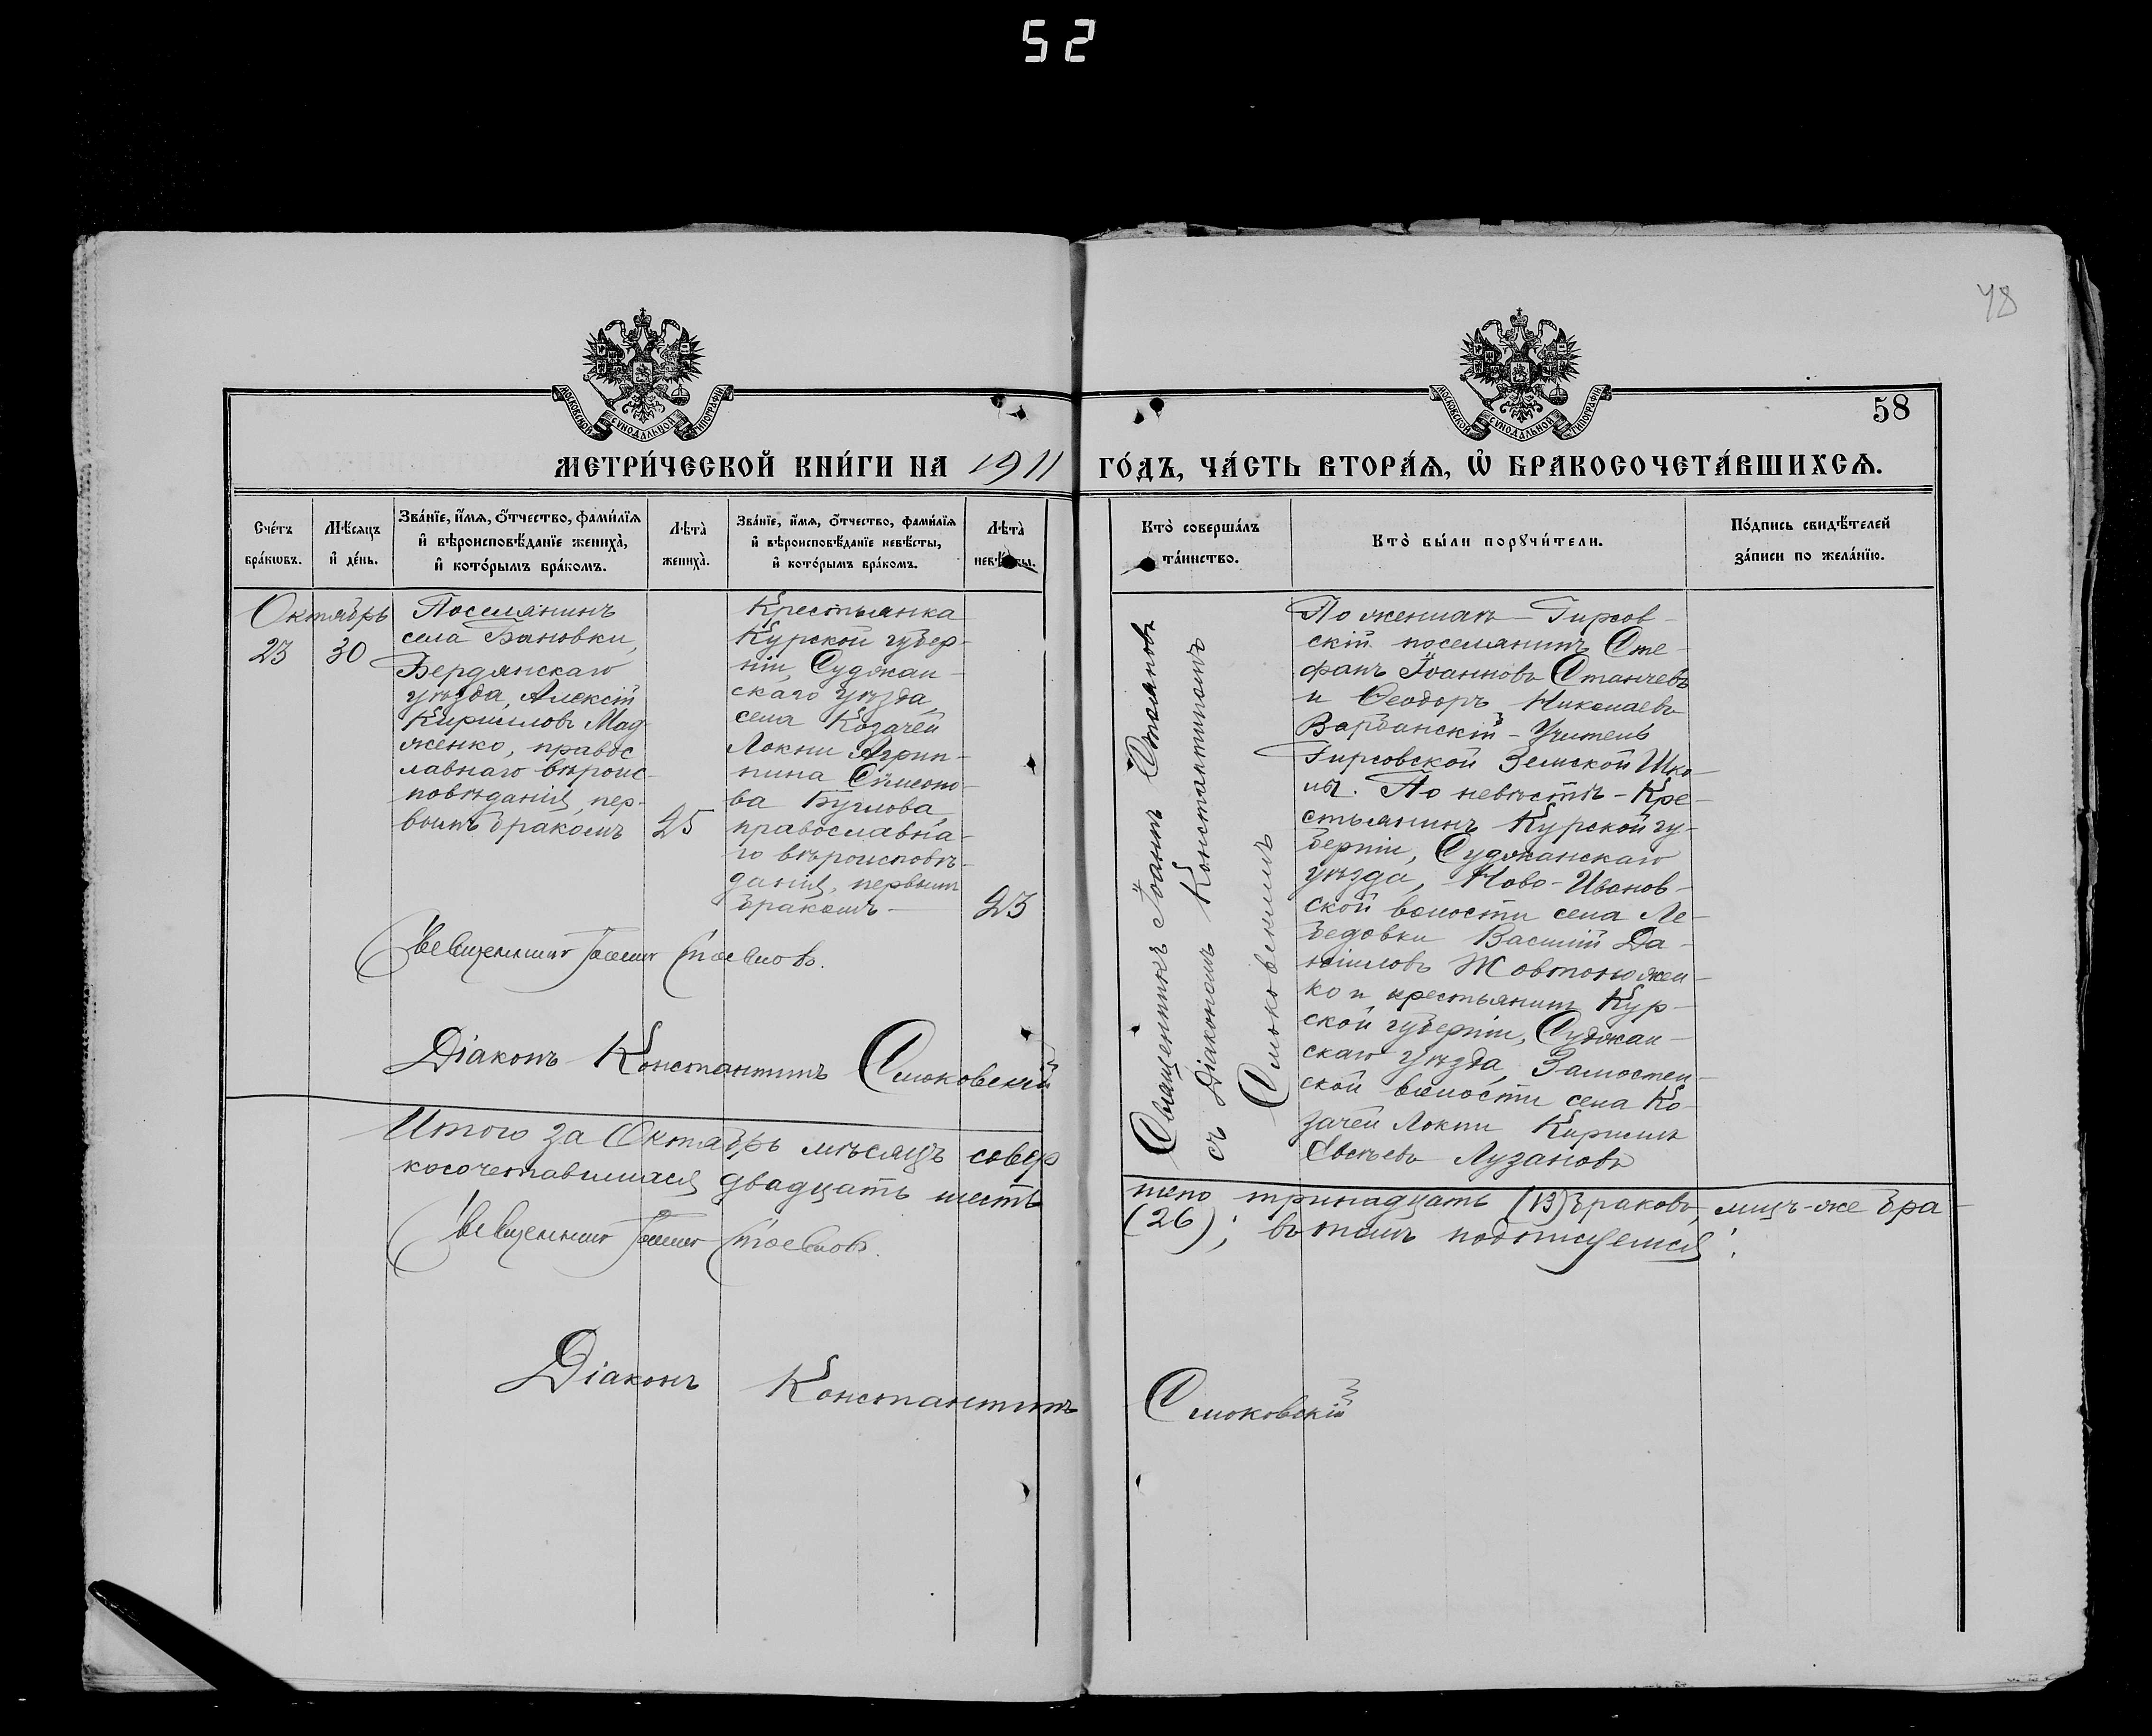 52
48
МОСКОВСКОЙ СѴНОДАЛЬНОЙ ТИПОГРАФІИ
МОСКОВСКОЙ СѴНОДАЛЬНОЙ ТИПОГРАФІИ
58
МЕТРИ́ЧЕСКОЙ КНИ́ГИ НА 1911 ГО́ДЪ, ЧА́СТЬ ВТОРА́Ѧ, Ѡ҆ БРАКОСОЧЕТА́ВШИХСѦ.
Сче́тъ
бра́кѡвъ.
Мѣ́сяцъ
и҆ де́нь.
Зва́нїе, и҆́мѧ, ѻ҆́тчество, фами́лїѧ
и҆ вѣроисповѣ́данїе жениха̀,
и҆ кото́рымъ бра́комъ.
Лѣта̀
жениха̀.
Зва́нїе, и҆́мѧ, ѻ҆́тчество, фами́лїѧ
и҆ вѣроисповѣ́данїе невѣ́сты,
и҆ кото́рымъ бра́комъ.
Лѣта̀
невѣ́сты.
Кто̀ соверша́лъ
та́инство.
Кто̀ бы́ли порꙋчи́тели.
По́дпись свидѣ́телей
за́писи по жела́нїю.
Октябрь
23
30
Поселянинъ
села Бановки,
Бердянскаго
уѣзда, Алексій
Кирилловъ Мад
женко, правос
лавнаго вѣроис-
повѣданія, пер-
вымъ бракомъ
25
Крестьянка
Курской губер-
ніи, Суджан-
скаго уѣзда,
села Козачей
Локни Агрип-
пина Сѵмеоно-
ва Буглова,
православна-
го вѣроисповѣ-
данія, первымъ
бракомъ —
23
Священникъ Іоаннъ Стояновъ
съ Діакономъ Константиномъ
Смоковскимъ
По женихѣ — Гирсов-
скій поселянинъ Сте-
фанъ Іоанновъ Станчевъ
и Ѳеодоръ Николаевъ
Варбанскій - Учитель
Гирсовской Земской Шко-
лы. По невѣстѣ - Кре-
стьянинъ Курской гу-
берніи, Суджанскаго
уѣзда, Ново-Иванов-
ской волости села Ле-
бедовки Василій Да-
ніиловъ Жовтоножен-
ко и крестьянинъ Кур-
ской губерніи, Суджан-
скаго уѣзда, Замостен-
ской волости села Ко-
зачей Локни Кириллъ
Евсѣевъ Лузановъ
Священникъ Іоаннъ Стояновъ.
Діаконъ Константинъ Смоковскій
Итого за Октябрь мѣсяцъ совер
шено тринадцать (13) браковъ, лицъ-же бра-
косочетавшихся двадцать шесть
(26); въ томъ подписуемся:
Священникъ Іоаннъ Стояновъ.
Діаконъ Константинъ Смоковскій